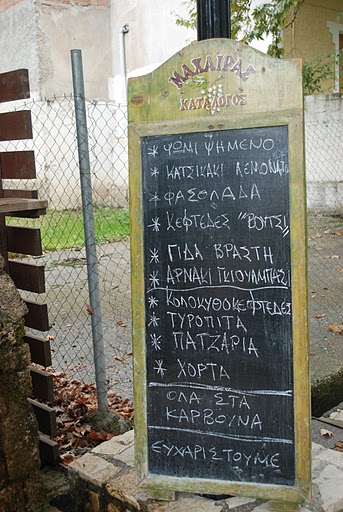 ΜΑΧΑΙΡΑΣ
ΚΑΤΑΛΟΓΟΣ
* ΨΩΜΙ ΨΗΜΕΝΟ
* ΚΑΤΣΙΚΑΚΙ ΛΕΜΟΝΑΤΟ
* ΦΑΣΟΛΑΔΑ
* ΚΕΦΤΕΔΕΣ "ΒΟΙΤΣΙ"
* ΓΙΔΑ ΒΡΑΣΤΗ
* ΑΡΝΑΚΙ ΓΚΙΟΥΛΜΠΑΣΙ
* ΚΟΛΟΚΥΘΟΚΕΦΤΕΔΕΣ
* ΤΥΡΟΠΙΤΑ
* ΠΑΤΖΑΡΙΑ
* ΧΟΡΤΑ
ΟΛΑ ΣΤΑ
ΚΑΡΒΟΥΝΑ
ΕΥΧΑΡΙΣΤΟΥΜΕ